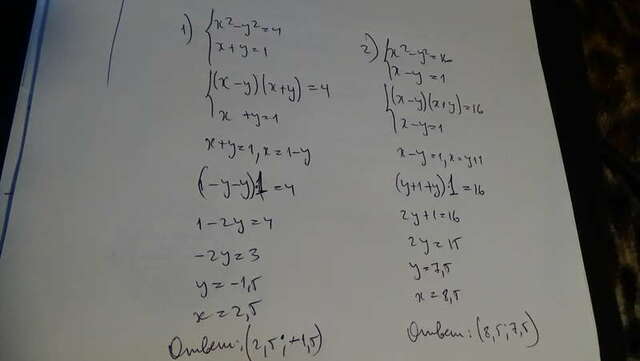 1) { x²-y²=4
x+y=1
{ (x-y)(x+y)=4
x +y=1
x+y=1, x=1-y
(1-y-y)·1=4
1-2y=4
-2y=3
y=-1,5
x=2,5
Ответ: (2,5; -1,5)
2) { x²-y²=16
x-y=1
{ (x-y)(x+y)=16
x-y=1
x-y=1, x=y+1
(y+1+y)·1=16
2y+1=16
2y=15
y=7,5
x=8,5
Ответ: (8,5; 7,5)